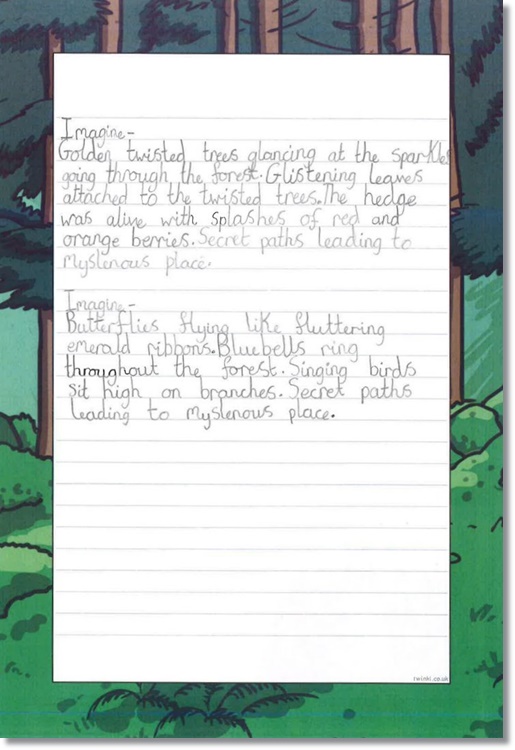 Imagine-
Golden twisted trees glancing at the sparkles
going through the forest. Glistening leaves
attached to the twisted trees. The hedge
was alive with splashes of red and
orange berries. Secret paths leading to
myslenous place.
Imagine-
Butterflies flying like fluttering
emerald ribbons. Bluebells ring
throughout the forest. Singing birds
sit high on branches. Secret paths
leading to myslenous place.
twinkl.co.uk